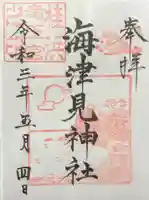 奉拝
海津見神社
令和三年五月四日